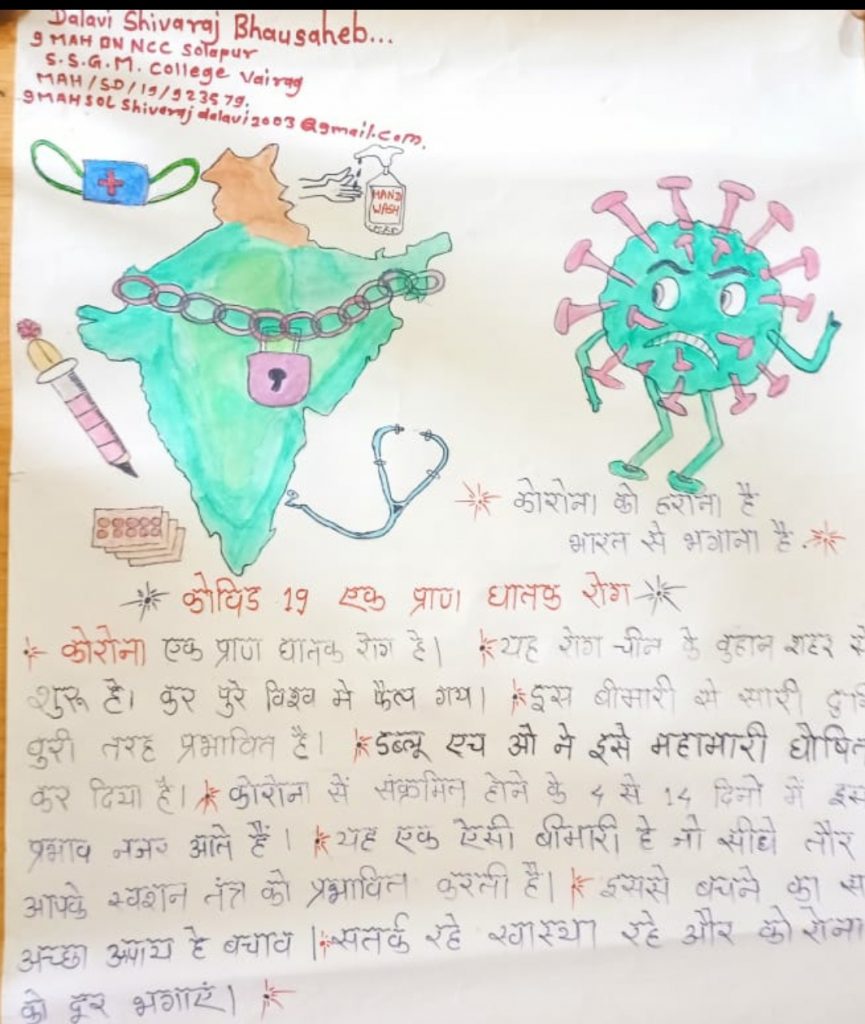 Dalavi Shivaraj Bhausaheb...
9 MAH BN NCC Solapur
S.S.G.M. College Vairag
MAH/SD/19/923579.
9MAHSOL Shivarajdalavi2003@gmail.com.
HAND
WASH
* कोरोना को हराना है
भारत से भगाना है. *
* कोविड 19 एक प्राण घातक रोग *
* कोरोना एक प्राण घातक रोग है। * यह रोग चीन के वुहान शहर से
शुरू है। कुर पुरे विश्व मे फैल गय। * इस बीमारी से सारी
वुरी तरह प्रभावित है। * डब्लू एच ओ ने इसे महामारी घोषित
कर दिया है। * कोरोना सें संक्रमित होने के 4 से 14 दिनो में इस
प्रभाव नजर आते हैं। * यह एक ऐसी बीमारी हे जो सीधे तौर
आपके स्वशन तंत्र को प्रभावित करती है। * इससे बचने का स
अच्छा उपाय हे बचाव। * सतर्क रहे स्वास्थ्या रहे और कोरोना
को दूर भगाएं। *